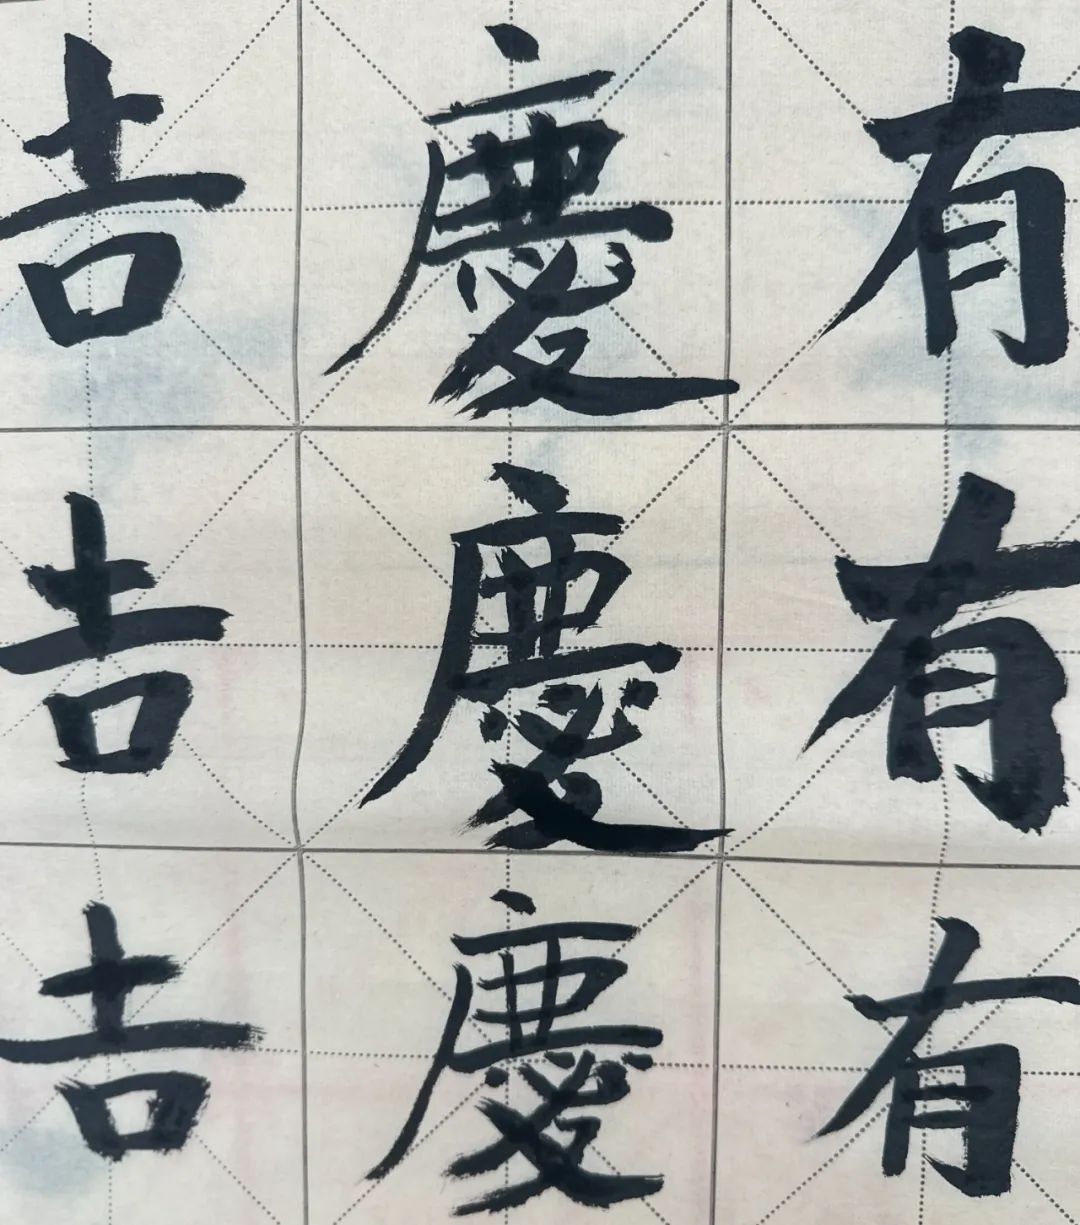 吉慶有
吉慶有
吉慶有